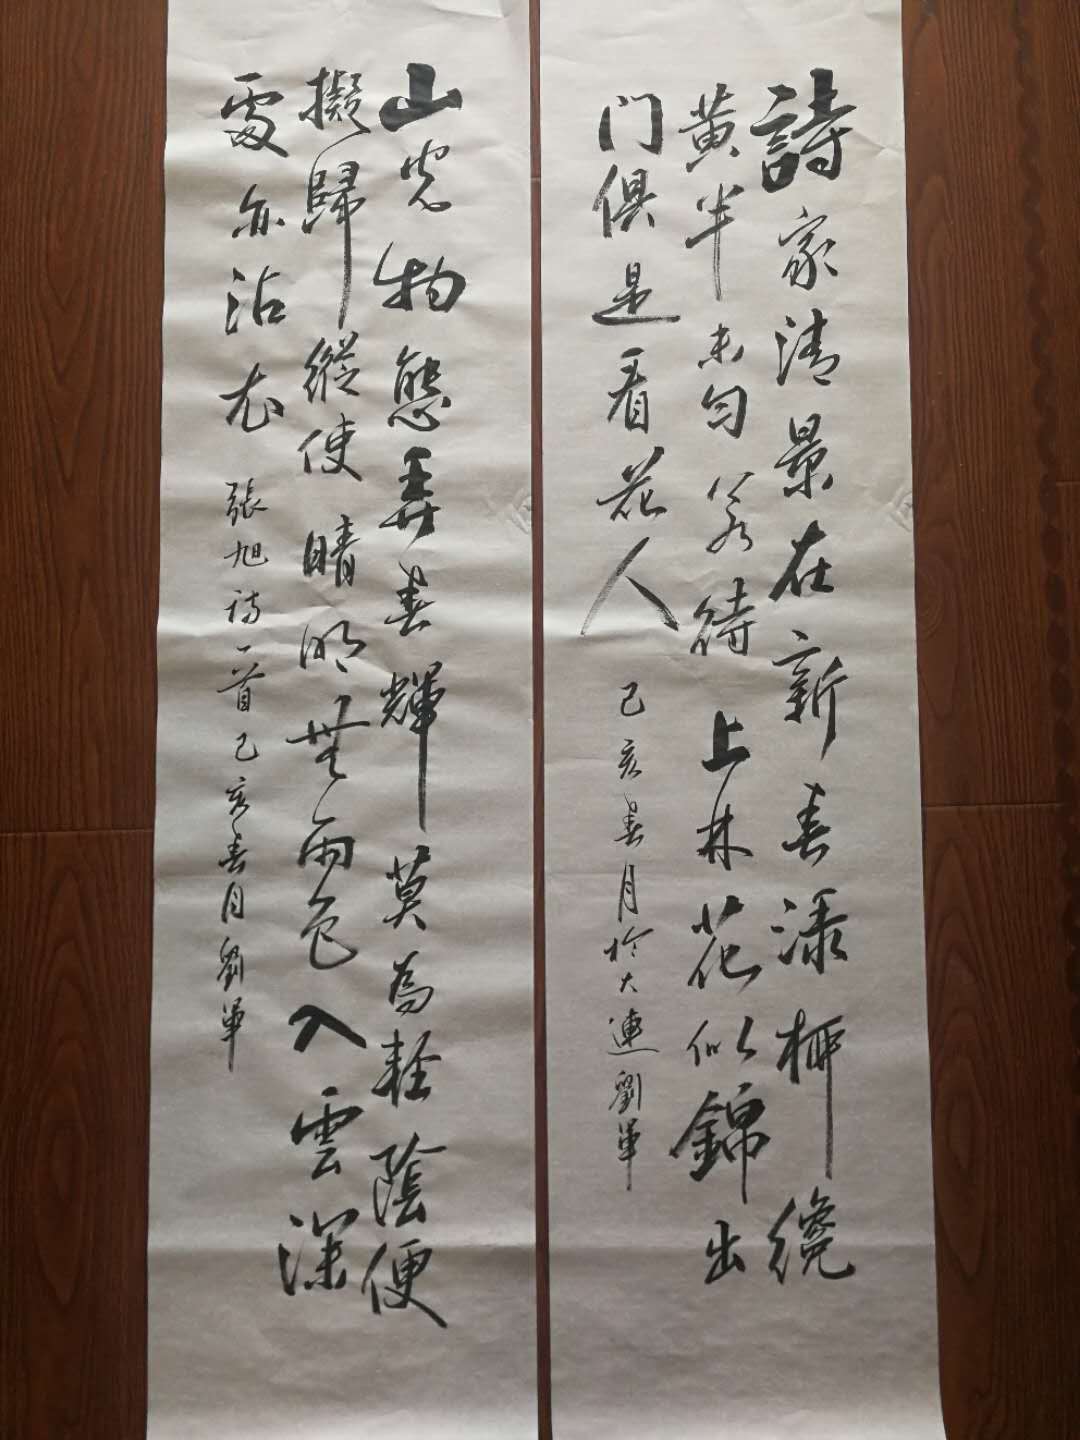 詩家清景在新春渌柳纔
黄半未匀若待上林花似錦出
门俱是看花人
己亥春月於大連劉軍
山光物態弄春輝莫為輕陰便
擬歸縱使晴明無雨色入雲深
處亦沾衣
張旭诗一首己亥春月劉軍